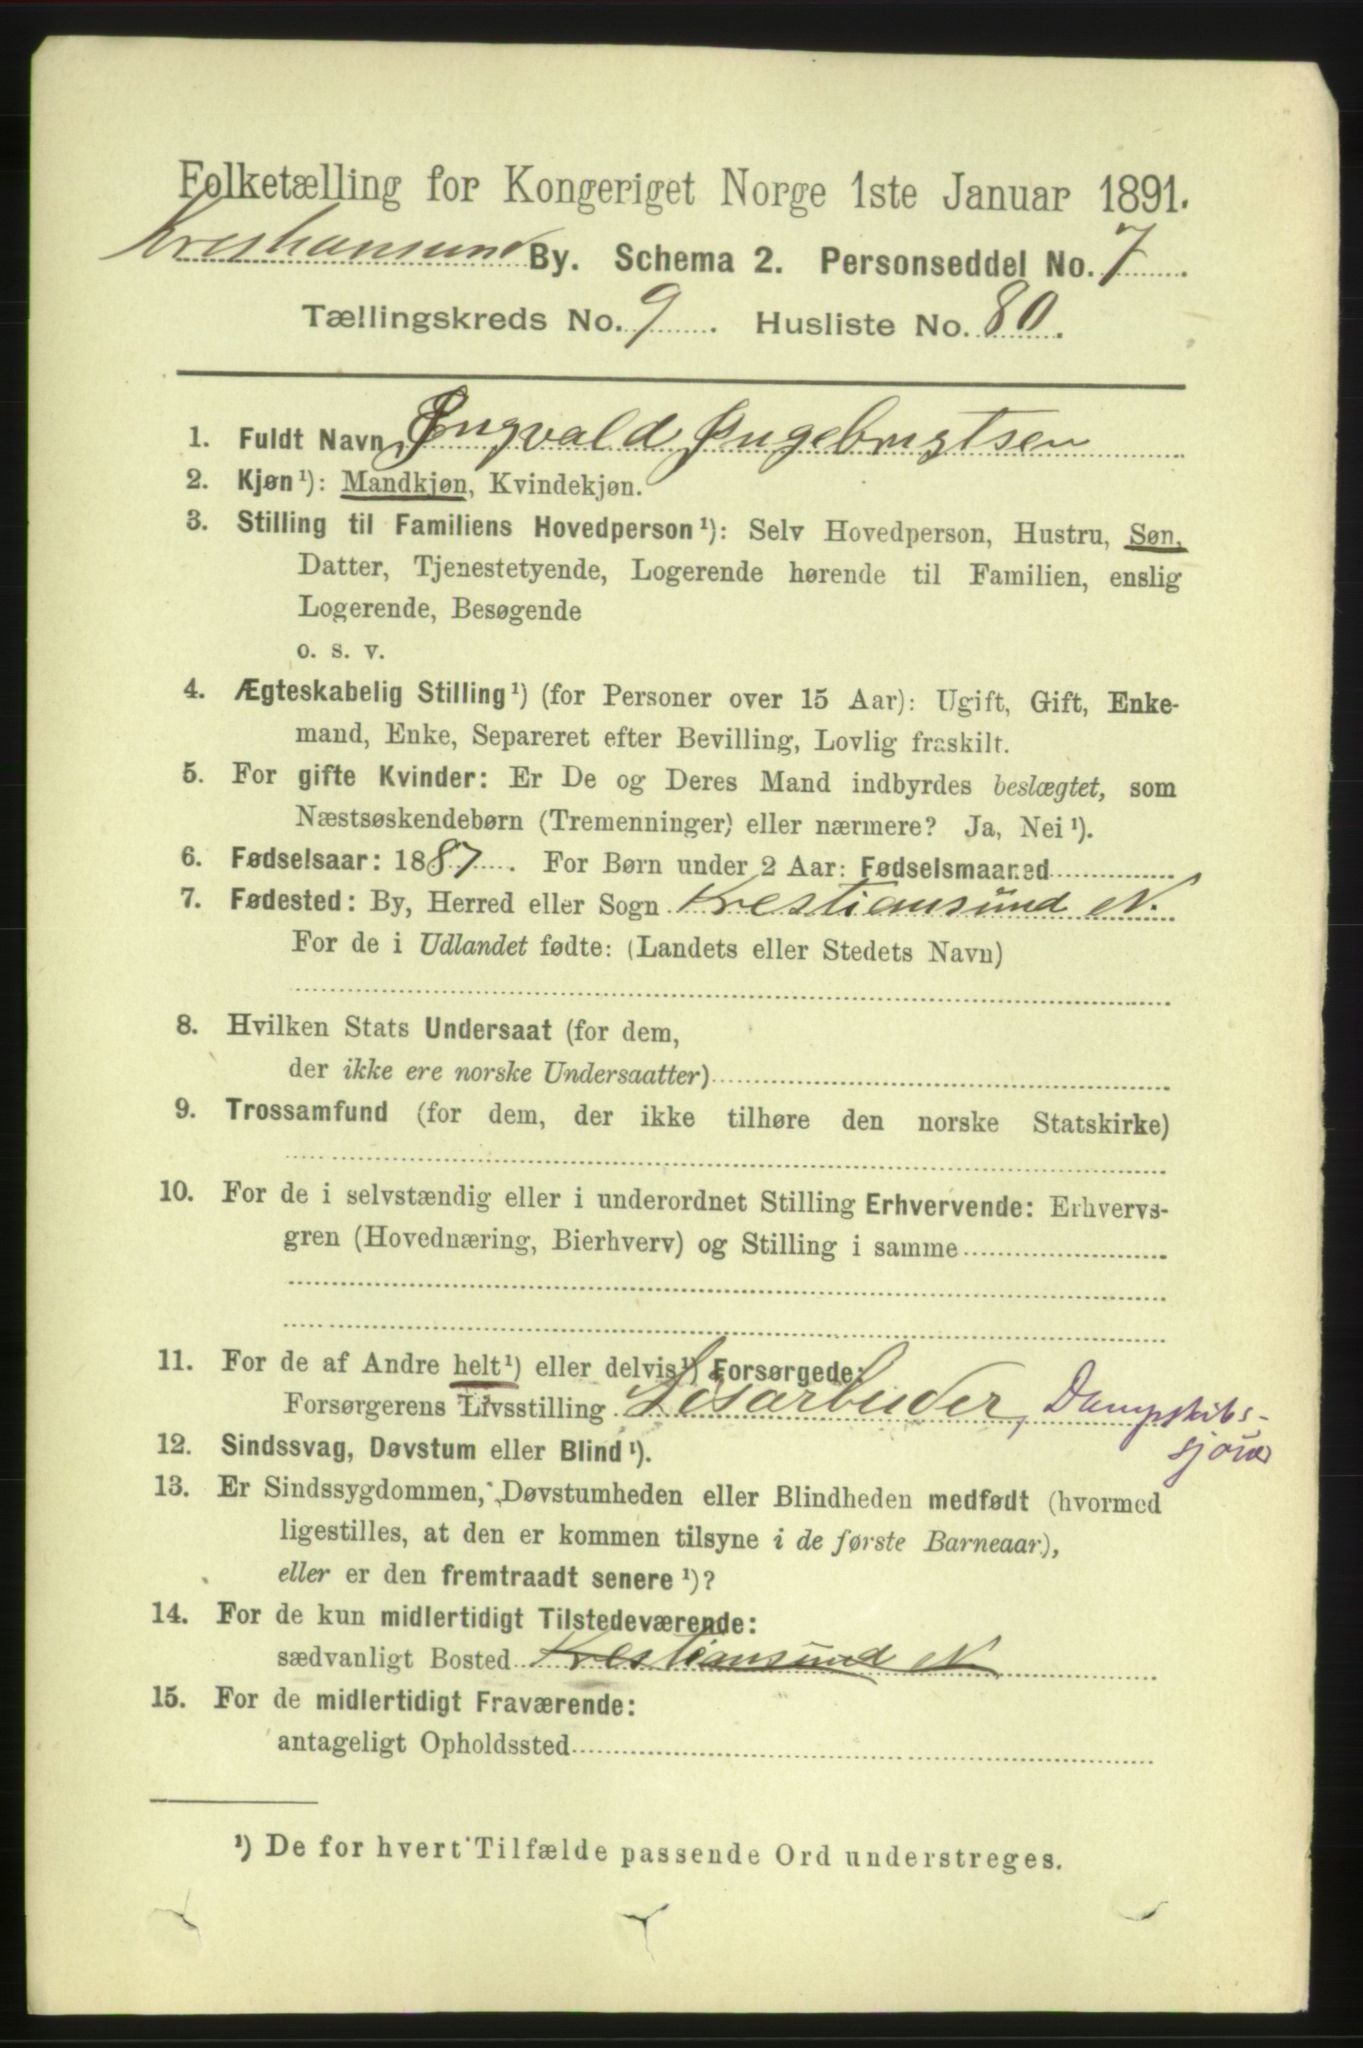 Folketælling for Kongeriget Norge 1ste Januar 1891.
Kristiansund By. Schema 2. Personseddel No. 7
Tællingskreds No. 9. Husliste No. 80.
1. Fuldt Navn Ingvald Ingebrigtsen
2. Kjøn¹): Mandkjøn, Kvindekjøn.
3. Stilling til Familiens Hovedperson¹): Selv Hovedperson, Hustru, Søn,
Datter, Tjenestetyende, Logerende hørende til Familien, enslig
Logerende, Besøgende
o. s. v.
4. Ægteskabelig Stilling¹) (for Personer over 15 Aar): Ugift, Gift, Enke-
mand, Enke, Separeret efter Bevilling, Lovlig fraskilt.
5. For gifte Kvinder: Er De og Deres Mand indbyrdes beslægtet, som
Næstsøskendebørn (Tremenninger) eller nærmere? Ja, Nei¹).
6. Fødselsaar: 1887. For Børn under 2 Aar: Fødselsmaaned
7. Fødested: By, Herred eller Sogn Krestiansund N.
For de i Udlandet fødte: (Landets eller Stedets Navn)
8. Hvilken Stats Undersaat (for dem,
der ikke ere norske Undersaatter)
9. Trossamfund (for dem, der ikke tilhøre den norske Statskirke)
10. For de i selvstændig eller i underordnet Stilling Erhvervende: Erhvervs-
gren (Hovednæring, Bierhverv) og Stilling i samme
11. For de af Andre helt¹) eller delvis¹) Forsørgede:
Forsørgerens Livsstilling Løsarbeider, Dampskibs-
sjouer
12. Sindssvag, Døvstum eller Blind¹).
13. Er Sindssygdommen, Døvstumheden eller Blindheden medfødt (hvormed
ligestilles, at den er kommen tilsyne i de første Barneaar),
eller er den fremtraadt senere¹)?
14. For de kun midlertidigt Tilstedeværende:
sædvanligt Bosted Krestiansund N
15. For de midlertidigt Fraværende:
antageligt Opholdssted
¹) De for hvert Tilfælde passende Ord understreges.